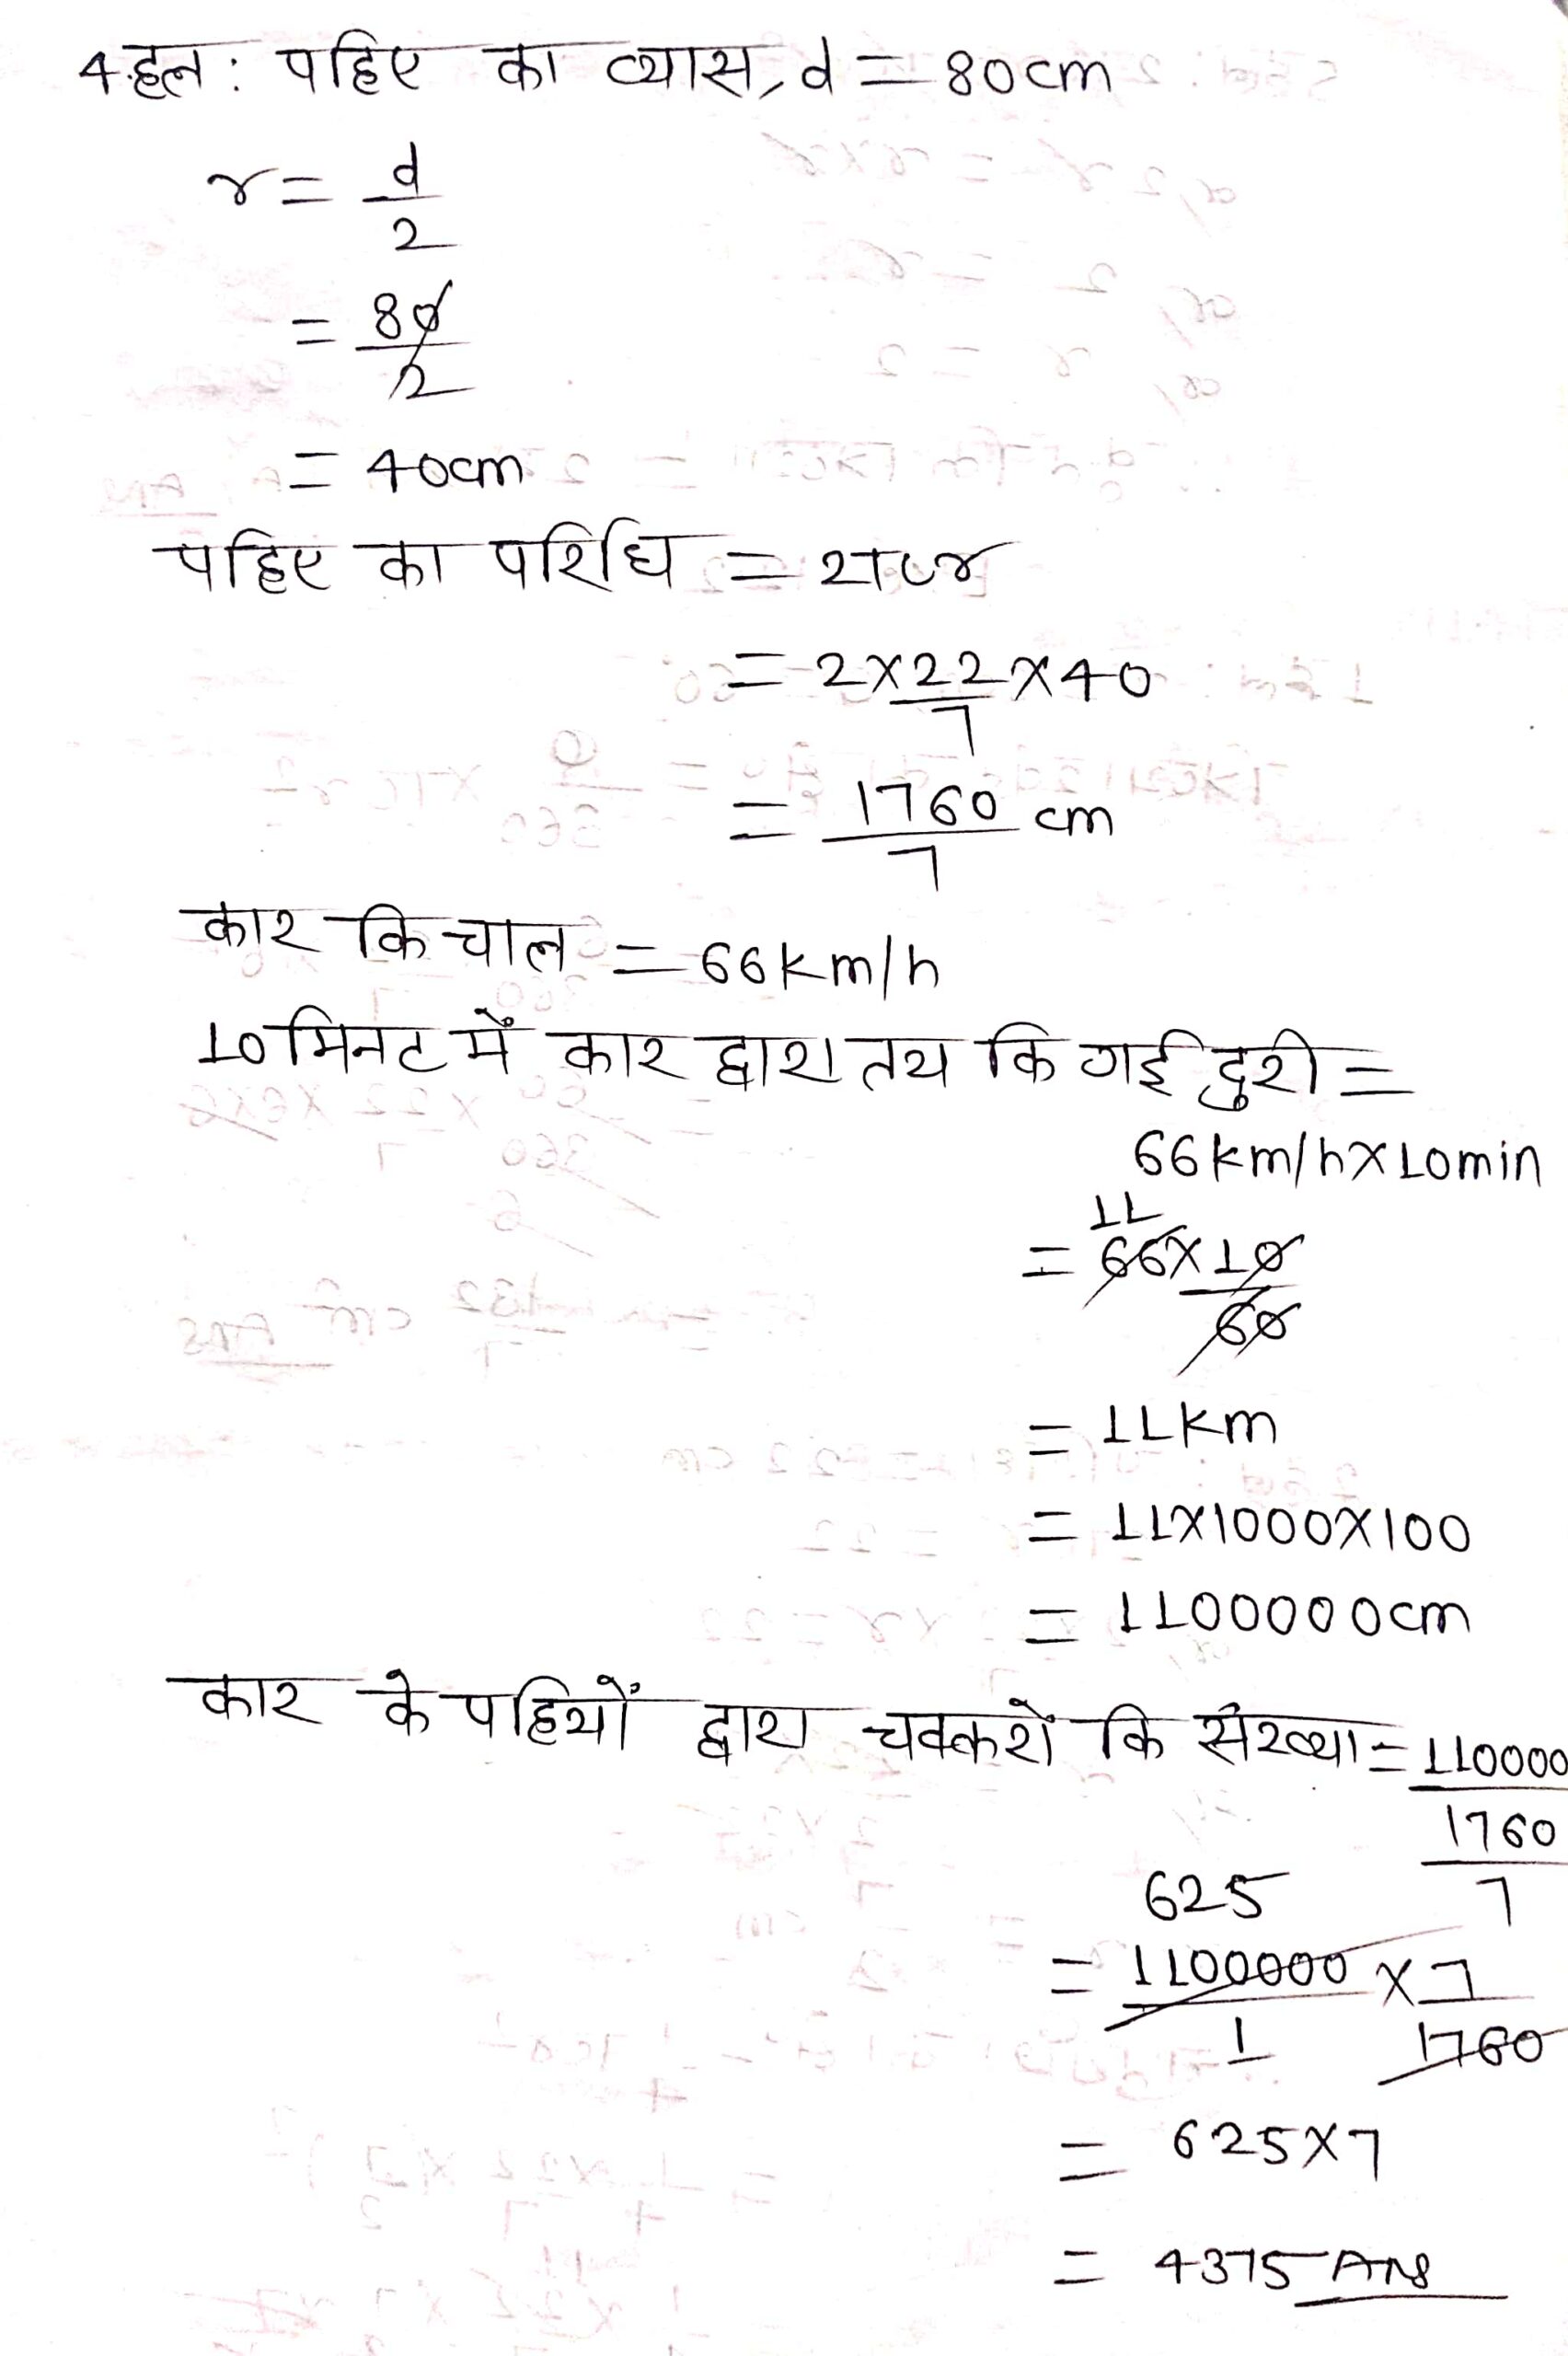 4.हल: पहिए का व्यास, d = 80cm
r = d/2
= 80/2
= 40cm
पहिए का परिधि = 2πr
= 2×22/7×40
= 1760/7 cm
कार कि चाल = 66km/h
10 मिनट में कार द्वारा तय कि गई दुरी =
66km/h×10min
11
= 66×10/60
= 11km
= 11×1000×100
= 1100000cm
कार के पहियों द्वारा चक्करों कि संख्या = 110000
1760
7
625
= 1100000/1 × 7/1760
= 625×7
= 4375 Ans